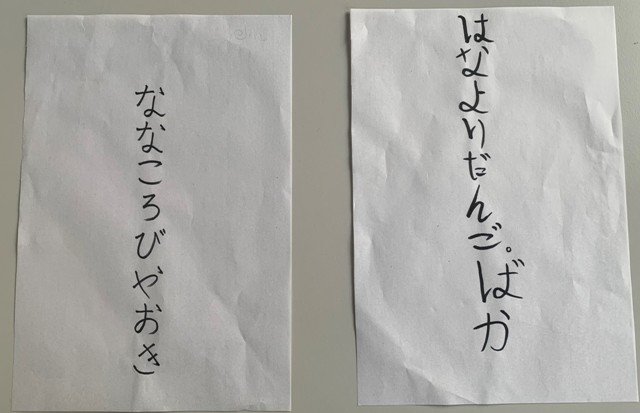 ななころびやおき
はなよりだんご。ばか